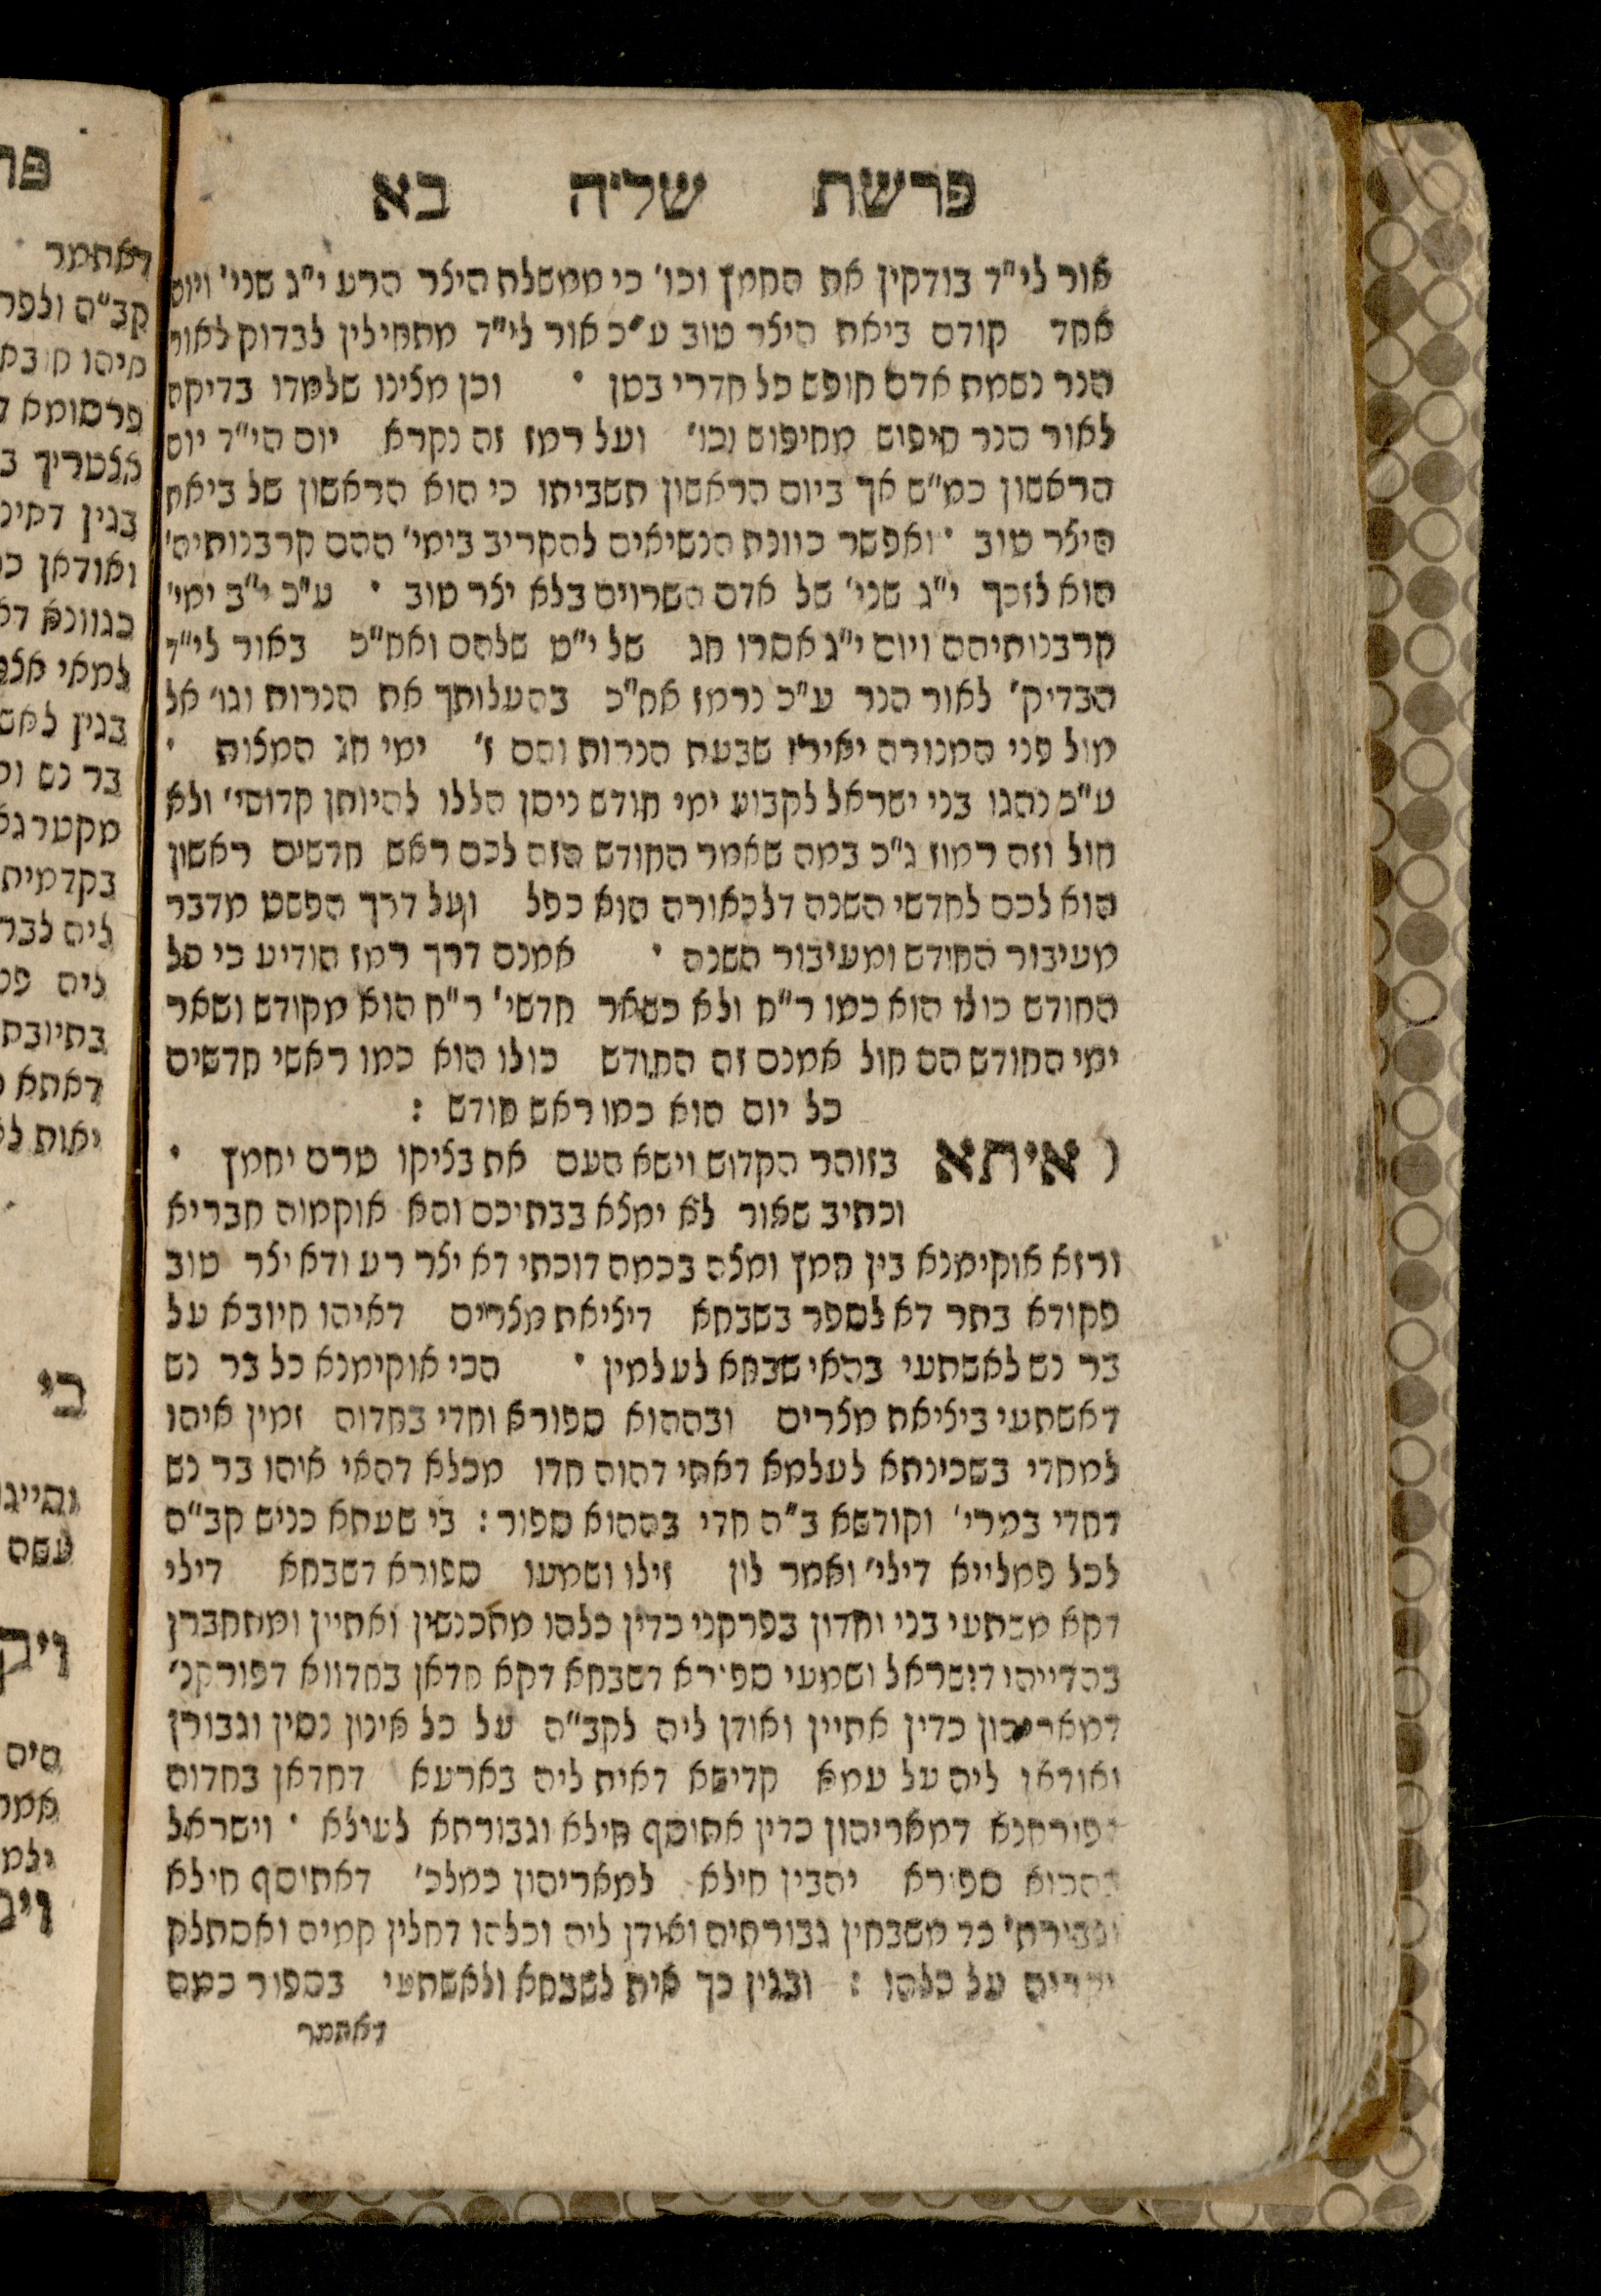 פרשת שליה בא
אור לי"ד בודקין את החמץ וכו' כי ממשלת היצר הרע י"ג שני' ויום
אחד קודם ביאת היצר טוב ע"כ אור לי"ד מתחילין לבדוק לאור
הנר נשמת אדם חופש כל חדרי בטן • וכן מצינו שלמדו בדיקת
לאור הנר חיפוש מחיפוש וכו' ועל רמז זה נקרא יום הי"ד יום
הראשון כמ"ש אך ביום הראשון תשביתו כי הוא הראשון של ביאת
היצר טוב • ואפשר כוונת הנשיאים להקריב בימי' ההם קרבנותיה'
הוא לזכך י"ג שני' של אדם השרוים בלא יצר טוב • ע"כ י"ב ימי'
קרבנותיהם ויום י"ג אסרו חג של י"ט שלהם ואח"כ באור לי"ד
הבדיק' לאור הנר ע"כ נרמז אח"כ בהעלותך את הנרות וגו' אל
מול פני המנורה יאירו שבעת הנרות והם ז' ימי חג המצות •
ע"כ נהגו בני ישראל לקבוע ימי חודש ניסן הללו להיותן קדושי' ולא
חול וזה רמוז ג"כ במה שאמר החודש הזה לכם ראש חדשים ראשון
הוא לכם לחדשי השנה דלכאורה הוא כפל ועל דרך הפשט מדבר
מעיבור החודש ומעיבור השנה • אמנם דרך רמז הודיע כי כל
החודש כולו הוא כמו ר"ח ולא כשאר חדשי' ר"ח הוא מקודש ושאר
ימי החודש הם חול אמנם זה החודש כולו הוא כמו ראשי חדשים
כל יום הוא כמו ראש חודש :
ו איתא בזוהר הקדוש וישא העם את בציקו טרם יחמץ •
וכתיב שאור לא ימצא בבתיכם והא אוקמוה חבריא
ורזא אוקימנא בין חמץ ומצה בכמה דוכתי דא יצר רע ודא יצר טוב
פקודא בתר דא לספר בשבחא דיציאת מצרים דאיהו חיובא על
בר נש לאשתעי בהאי שבחא לעלמין • הכי אוקימנא כל בר נש
דאשתעי ביציאת מצרים ובההוא ספורא וחדי בחדוה זמין איהו
למחדי בשכינתא לעלמא דאתי דהוה חדו מכלא דהאי איהו בר נש
דחדי במרי' וקודשא ב"ה חדי בההוא ספור : בי שעתא כניש קב"ה
לכל פמלייא דילי' ואמר לון זילו ושמעו ספורא דשבחא דילי
דקא משתעי בני וחדון בפרקני כדין כלהו מתכנשין ואתיין ומתחברן
בהדייהו דישראל ושמעי ספורא דשבחא דקא חדאן בחדווא דפורקנ'
דמאריהון כדין אתיין ואודן ליה לקב"ה על כל אינון נסין וגבורן
ואודאן ליה על עמא קדישא דאית ליה בארעא דחדאן בחדוה
דפורקנא דמאריהון כדין אתוסף חילא וגבורתא לעילא • וישראל
בההוא ספורא יהבין חילא למאריהון כמלכ' דאתוסף חילא
וגבורת' כד משבחין גבורתיה ואודן ליה וכלהו דחלין קמיה ואסתלק
יקריה על כלהו : ובגין כך אית לשבחא ולאשתעי בספור כמה
דאתמר